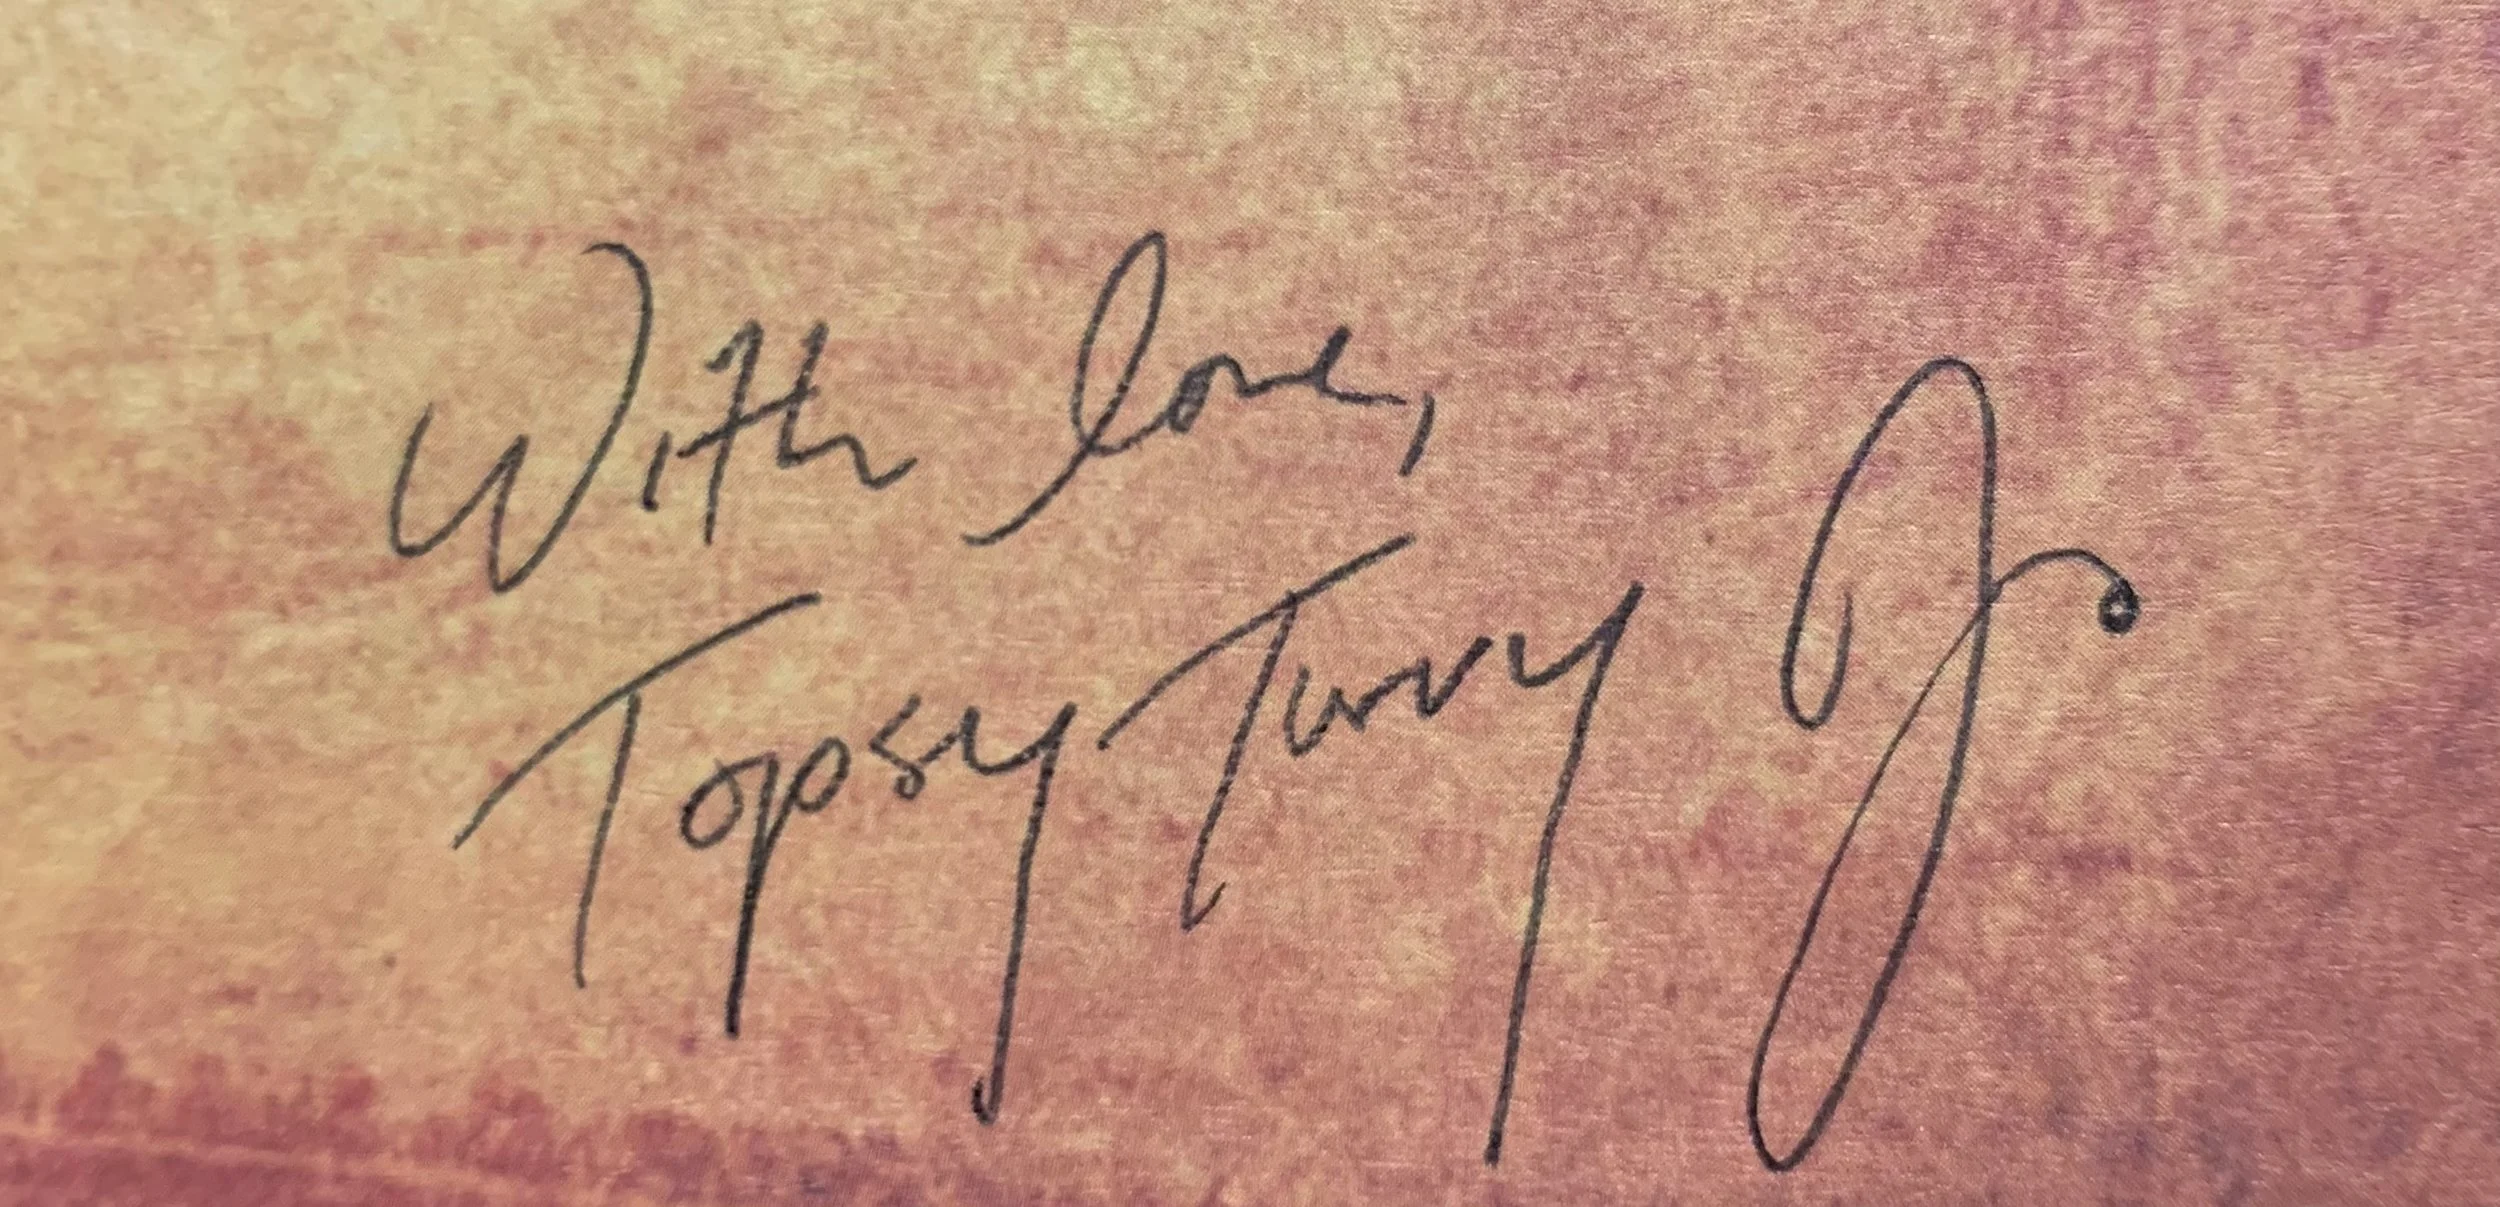 With love,
Topsy Turvy Jr